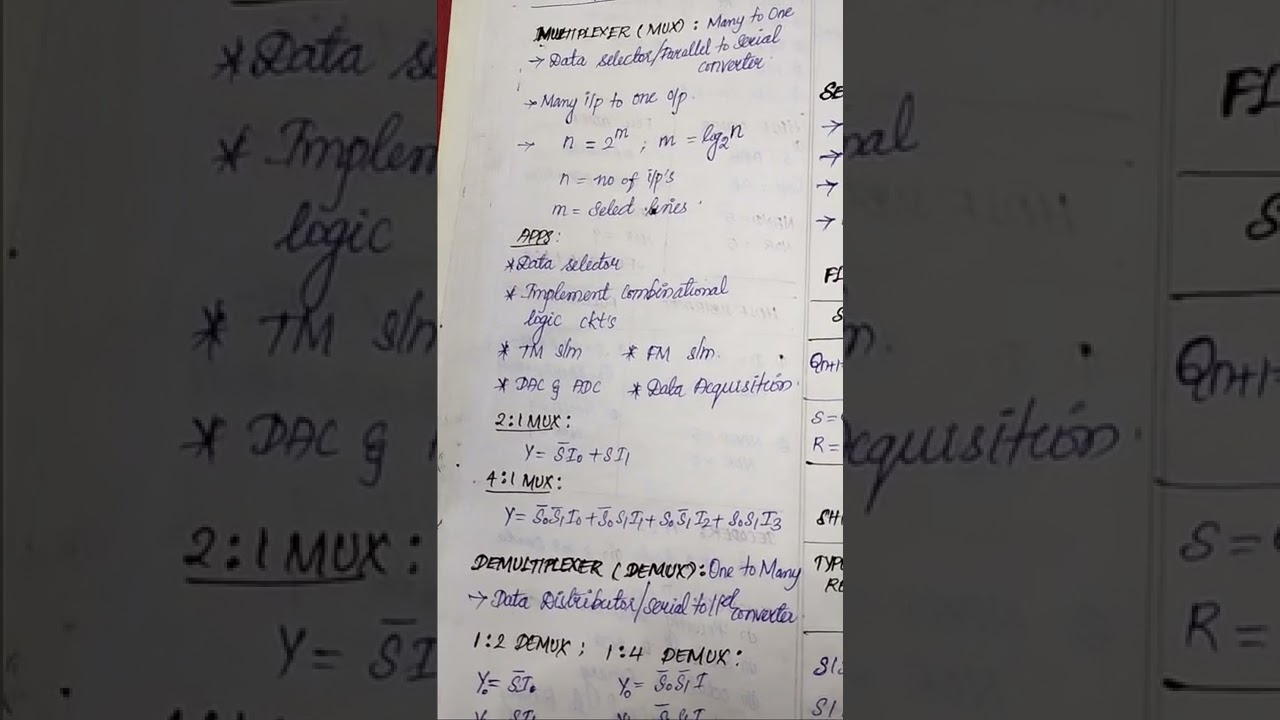 MULTIPLEXER (MUX) : Many to One
→ Data selector/Parallel to Serial
converter.
→ Many i/p to one o/p.
→ n = 2^m ; m = log₂n
n = no of i/p's
m = select lines.
APPS:
* Data selector
* Implement combinational
logic ckt's
* TM s/m * FM s/m.
* DAC & ADC * Data Acquisition.
2:1 MUX:
Y = S̅I₀ + SI₁
4:1 MUX:
Y = S̅₀S̅₁I₀ + S̅₀S₁I₁ + S₀S̅₁I₂ + S₀S₁I₃
DEMULTIPLEXER (DEMUX): One to Many
→ Data Distributor/serial to ||el converter.
1:2 DEMUX ; 1:4 DEMUX :
Y₀ = S̅I₀ Y₀ = S̅₀S̅₁I
SE
FI
S
Qn+1=
S =
R =
SH
TYP
RE
SI
SI